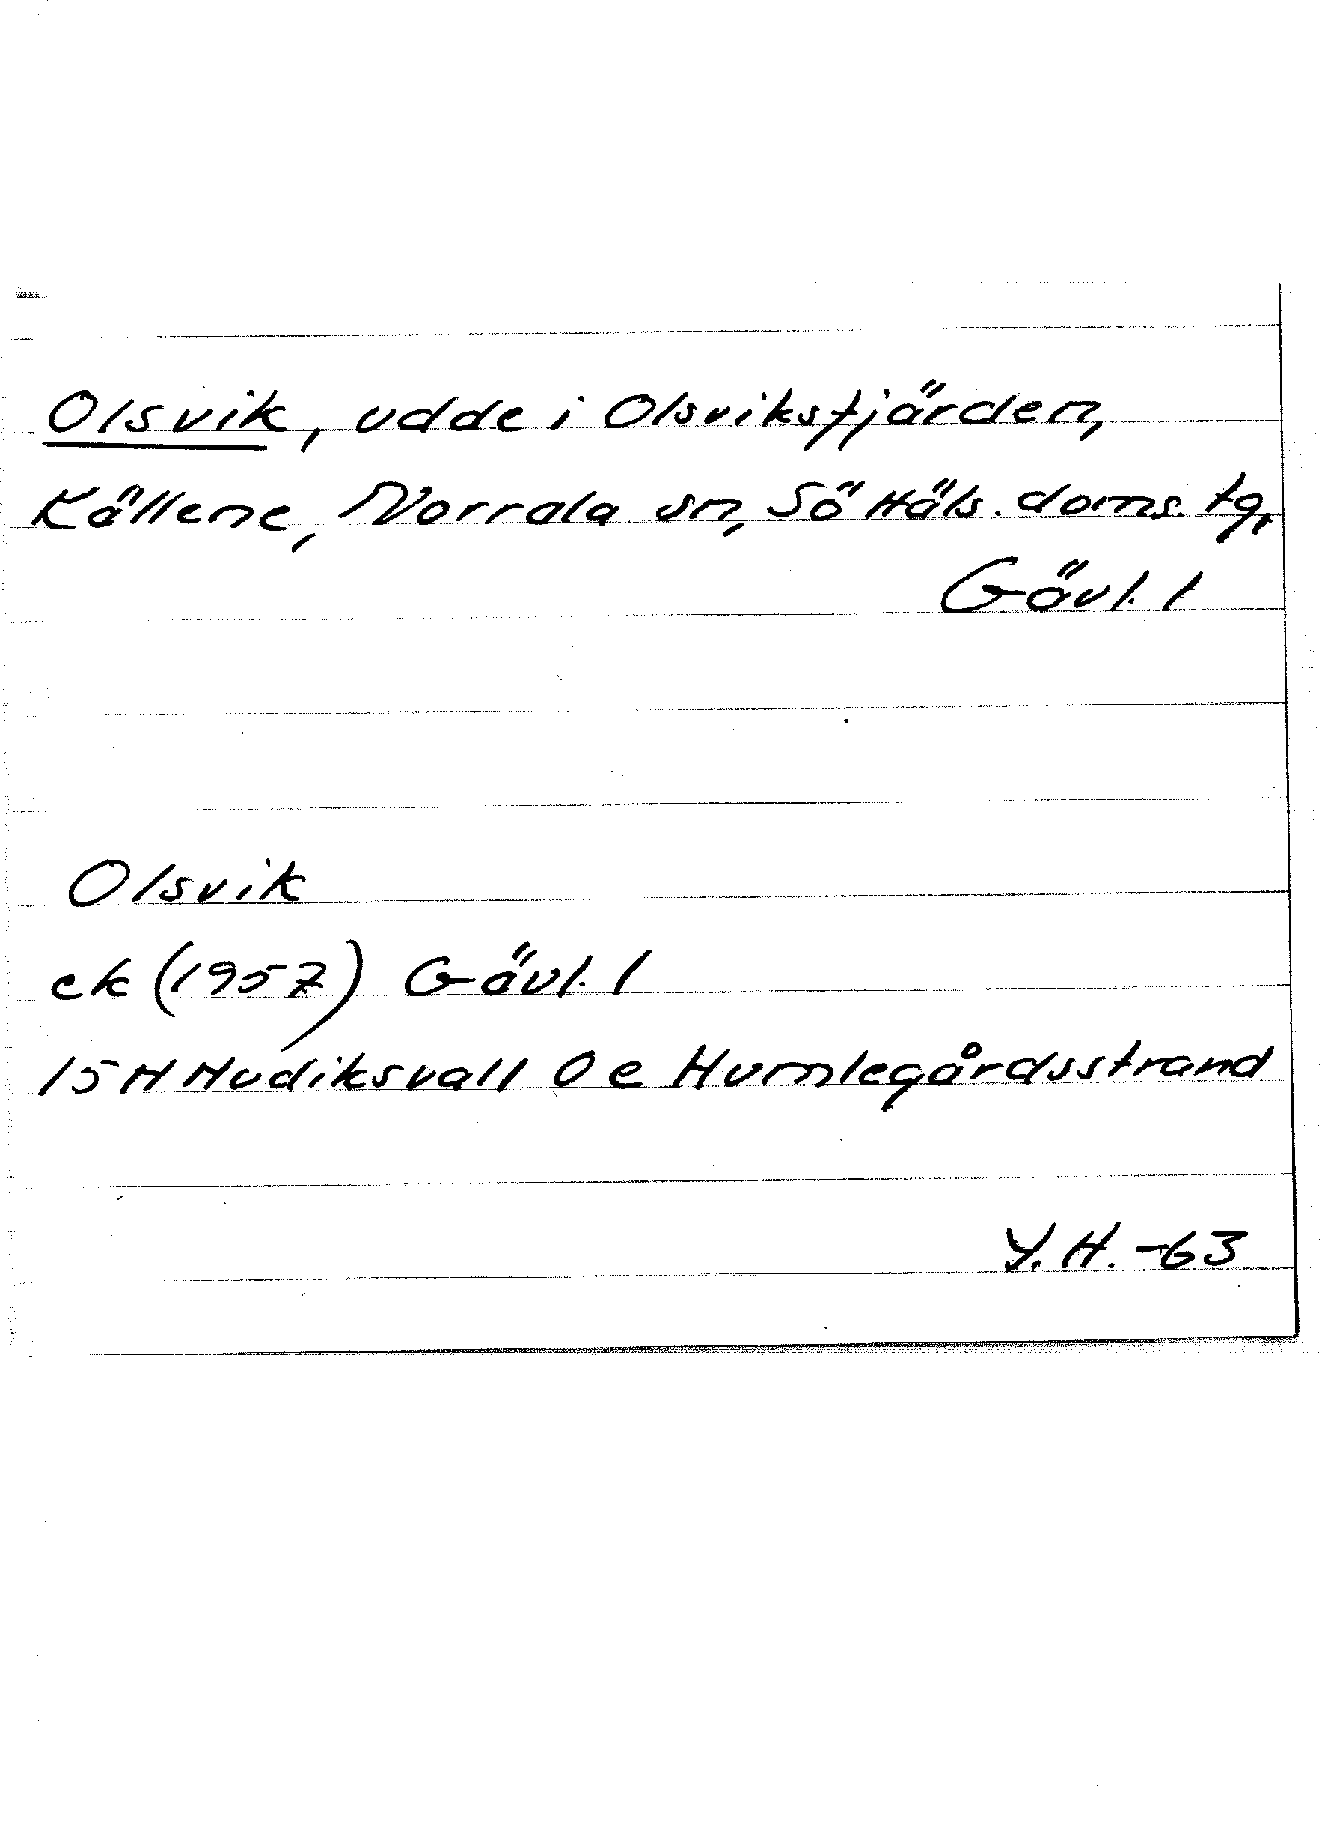 Olsvik, udde i Olsviksfjärden,
Källene, Norrala sn, Sö Häls. doms. tg,
Gävl. l
Olsvik
ek (1957) Gävl. l
15H Hudiksvall 0 e Humlegårdsstrand
Y.H. -63